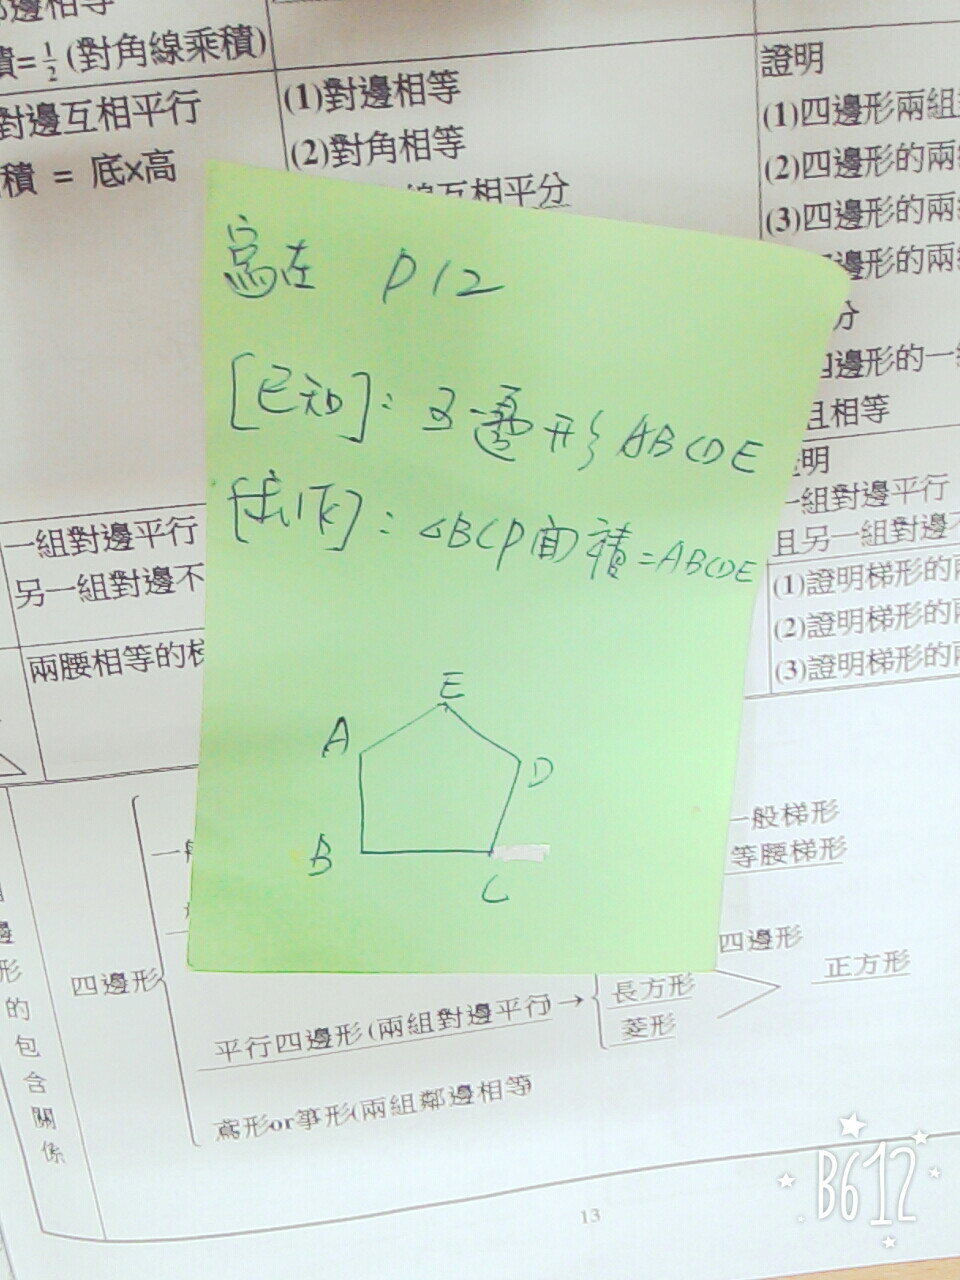 鄰邊相等
積=1/2(對角線乘積)
對邊互相平行
積 = 底×高
(1)對邊相等
(2)對角相等
線互相平分
證明
(1)四邊形兩組
(2)四邊形的兩
(3)四邊形的兩
邊形的兩
分
四邊形的一
且相等
寫在 P12
[已知]: 五邊形ABCDE
[求作]: △BCP面積=ABCDE
E
A
D
B
C
一組對邊平行
另一組對邊不
兩腰相等的梯
證明
一組對邊平行
且另一組對邊不
(1)證明梯形的兩
(2)證明梯形的兩
(3)證明梯形的兩
一般梯形
等腰梯形
四邊形
四邊形
正方形
長方形
菱形
平行四邊形(兩組對邊平行) →
鳶形or箏形(兩組鄰邊相等)
邊
形
的
包
含
關
係
13
B612